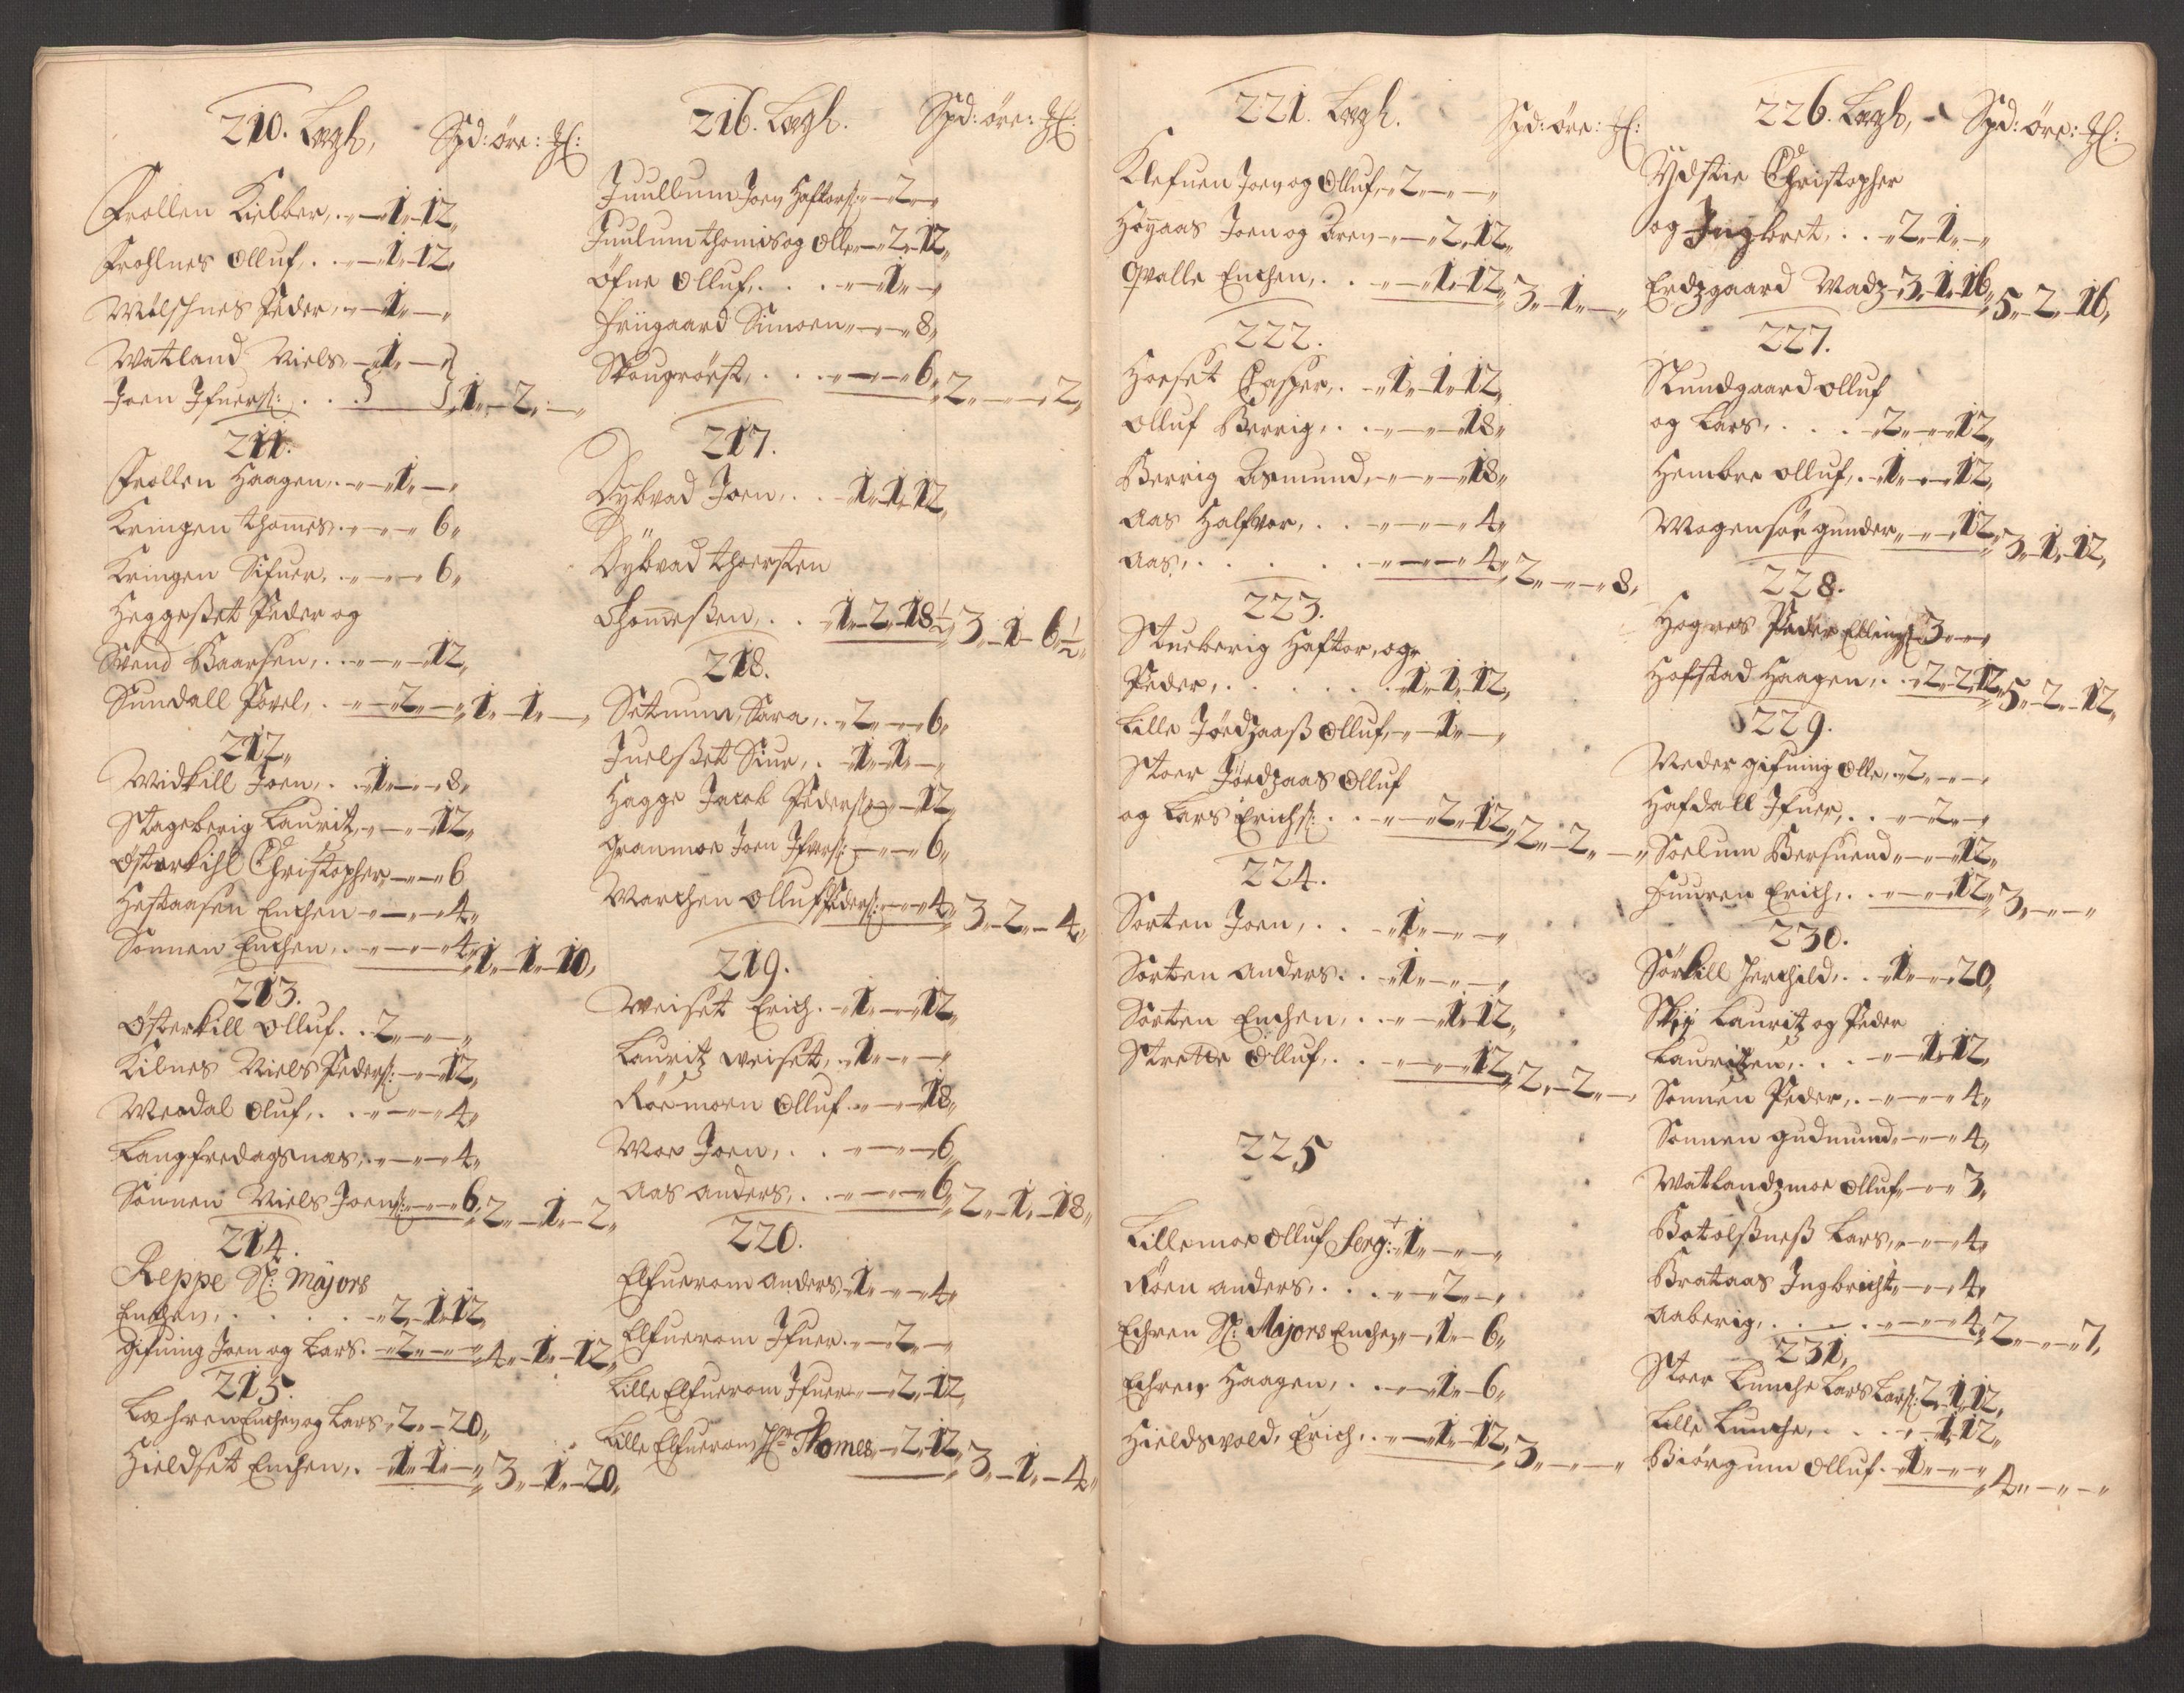 210. Lægh, Spd: öre: :
Frollen Kielber, . „ — 1 „ 12 „
Frohlnes Olluf, . . „ — 1 „ 12 „
Mölschnes Peder, „ — 1 „ — „
Watland Niels „ — 1 „ —
Joen Ifuers: . . 1 „ — 2 „ — „
211.
Frollen Haagen, . „ — 1 „ — „
Kringen thomes „ — „ — „ 6 „
Kringen Sifuer, . „ — „ — 6 „
Heggeßet Peder og
Svend Baarsen, . „ — „ — 12 „
Sundall Povel, . „ — 2 „ — „ 1 „ 1 „ — „
212 „
Widkill Joen, . . „ 1 „ — „ 8 „
Stageberig Lauritz „ — „ — 12 „
Österkihl Christopher „ — „ — 6
Hestaasen Enchen „ — „ — „ 4 „
Sonnen Enchen, . „ — „ — 4 „ 1 „ — 1 „ — 10 „
213.
Österkill Olluf . . 2 „ — „ — „
Kilnes Niels Peders: „ — „ 12 „
Werdal Oluf, . . „ — „ — „ 4 „
Langfredagsnas, „ — „ — „ 4 „
Sonnen Niels Joens: „ — „ 6 „ 2 „ — 1 „ — 2 „
214.
Reppe Sl: Majors
Enchen, . . . . „ 2 „ 1 „ 12 „
Gifuing Joen og Lars . „ 2 „ — „ — „ 4 „ — 1 „ — 12 „
215.
Læhren Enchen og Lars „ 2 „ — 20 „
Hieldset Enchen, . „ 1 „ 1 „ — „ 3 „ — 1 „ — 20 „
216. Lægh. Spd: öre: :
Juullum Joen Haftors: „ — 2 „ — „
Juulum thomis og Olle „ — 2 „ 12 „
Öfne Olluf, . . . „ — 1 „ — „
Friigaard Simoen „ — „ — „ 8 „
Skougröest, . . . „ — „ — „ 6 „ 2 „ — „ — 2 „
217.
Dybvad Joen, . . „ 1 „ 1 „ 12 „
Dybvad thorsten
Thomeßen, . . „ 1 „ 2 „ 18 ½ „ 3 „ — 1 „ 6 ½ „
218.
Setnum, Sara, . „ 2 „ — „ 6 „
Juelsßet Siur, . „ 1 „ 1 „ — „
Hagge Jacob Peders: „ — „ 12 „
Granmoe Joen Ifvers: „ — „ 6 „
Marchen Olluf Peders: „ — „ 4 „ 3 „ — 2 „ — 4 „
219.
Weiset Erich . „ 1 „ — „ 12 „
Lauritz Weiset, . „ 1 „ — „ — „
Röemoen Olluf „ — „ — 18 „
Moe Joen, . . „ — „ — 6 „
Aas Anders, . . „ — „ — „ 6 „ 2 „ — 1 „ — 18 „
220.
Elfuerom Anders „ 1 „ — „ 4 „
Elfuerom Ifuer . „ — 2 „ — „
Lille Elfuerom Ifuer „ — 2 „ 12 „
Lille Elfuerom Thomes „ — 2 „ 12 „ 3 „ — 1 „ — 4 „
221. Lægh. Spd: öre: :
Klefuen Joen og Olluf „ 2 „ — „ — „
Höyaas Joen og Aren „ — „ 2 „ 12 „
Qvalle Enchen, . . „ — 1 „ 12 „ 3 „ — 1 „ — „
222.
Horset Casper, . „ 1 „ 1 „ 12 „
Olluf Berrig, . . „ — „ — 18 „
Berrig Asmund, „ — „ — 18 „
Aas Halfvor, . . „ — „ — „ 4 „
Aas, . . . . . „ — „ — 4 „ 2 „ — „ — 8 „
223.
Stueberig Haftor, og
Peder, . . . . . „ 1 „ 1 „ 12 „
Lille Jördzaaß Olluf, „ — 1 „ — „
Stoer Jördzaas Olluf
og Lars Erichs: . . „ — 2 „ 12 „ 2 „ — 2 „ — „
224.
Sorten Joen, . . „ 1 „ — „ — „
Sorten Anders . . „ 1 „ — „ — „
Sorten Enchen, . . „ — 1 „ 12 „
Strette Olluf, . . „ — „ — 12 „ 2 „ — 2 „ — „
225
Lillemoe Olluf Serg:t „ 1 „ — „ — „
Röen Anders, . . . „ — 2 „ — „
Echren Sl: Majors Enchen „ — 1 „ 6 „
Echren Haagen, . . „ — 1 „ 6 „
Hieldsvold, Erich, . „ — 1 „ 12 „ 3 „ — „ — „
226. Lægh, Spd: öre: :
Ydstie Christopher
og Ingbret, . . „ 2 „ 1 „ — „
Erdzgaard Madz „ 3 „ 1 „ 16 „ 5 „ 2 „ 16 „
227.
Stundgaard Olluf
og Lars, . . . . „ 2 „ — „ 12 „
Hembre Olluf, . „ 1 „ — „ 12 „
Mogensöe Gunder „ — „ 12 „ 3 „ — 1 „ 12 „
228.
Hognes Peder Ellings: 3 „ — „
Hofstad Haagen, . „ 2 „ 2 „ 12 „ 5 „ — 2 „ — 12 „
229.
Neder Gifuing Olle, . „ 2 „ — „ — „
Hafdall Ifuer, . . „ — 2 „ — „
Soelum Bersuend „ — „ — 12 „
Fuuren Erich, . . „ — „ — 12 „ 3 „ — „ — „
230.
Sörkill Jerchild, . . „ 1 „ — „ 20 „
Skjy Lauritz og Peder
Lauritzen, . . . „ — 1 „ 12 „
Sonnen Peder, . „ — „ — 4 „
Sonnen Gudmund „ — „ — 4 „
Watlandzmoe Olluf „ — „ 3 „
Botolßneß Lars, „ — „ — 4 „
Brataas Ingbricht „ — „ 4 „
Aaberig, . . . . „ — „ — „ 4 „ 2 „ — „ — 7 „
231,
Stoer Lunche Lars Lars: 2 „ 1 „ 12 „
Lille Lunche, . . . „ — 1 „ 12 „
Biörgum Olluf . „ 1 „ — „ — „ 4 „ — „ — „